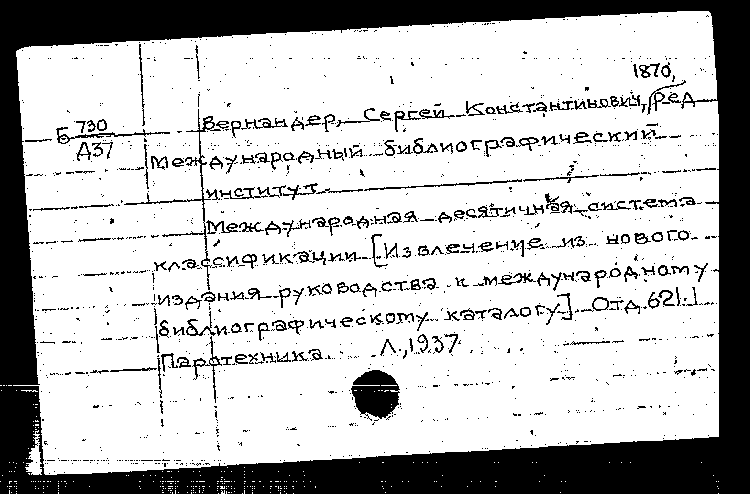 1870,
Б 730 Вернандер, Сергей Константинович, ред
Д37 Международный библиографический
институт.
Международная десятичная система
классификации [Извлечение из нового
издания руководства к международному
библиографическому каталогу] Отд. 621.1
Паротехника. Л., 1937